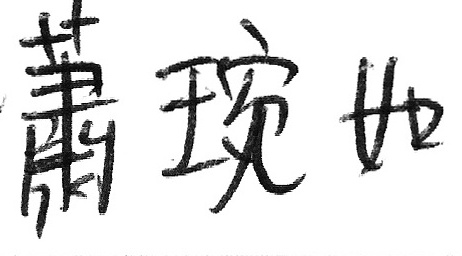 蕭琬如